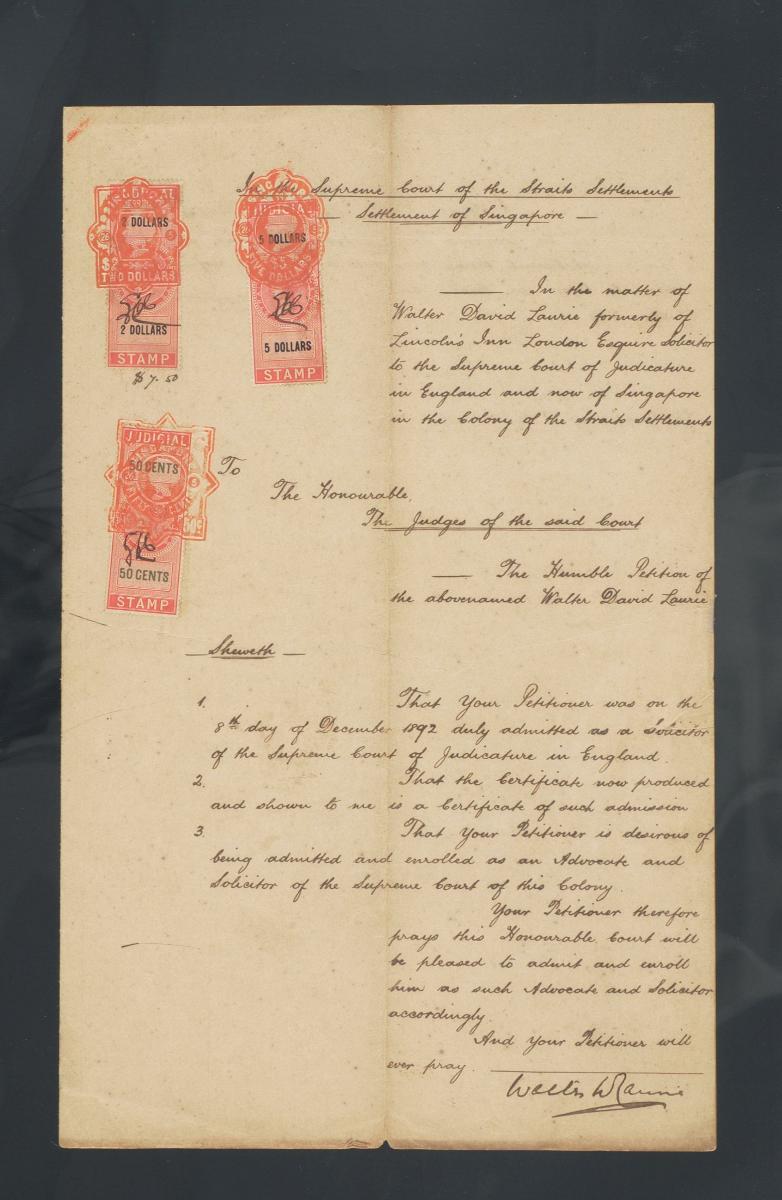 In the Supreme Court of the Straits Settlements
Settlement of Singapore
JUDICIAL
2 DOLLARS
$2
TWO DOLLARS
2 DOLLARS
STAMP
$7.50
JUDICIAL
5 DOLLARS
FIVE DOLLARS
5 DOLLARS
STAMP
In the matter of
Walter David Laurie formerly of
Lincoln's Inn London Esquire Solicitor
to the Supreme Court of Judicature
in England and now of Singapore
in the Colony of the Straits Settlements
JUDICIAL
50 CENTS
50c
50 CENTS
STAMP
To
The Honourable,
The Judges of the said Court
The Humble Petition of
the abovenamed Walter David Laurie
Sheweth
1. That Your Petitioner was on the
8th day of December 1892 duly admitted as a Solicitor
of the Supreme Court of Judicature in England.
2. That the Certificate now produced
and shown to me is a Certificate of such admission
3. That Your Petitioner is desirous of
being admitted and enrolled as an Advocate and
Solicitor of the Supreme Court of this Colony.
Your Petitioner therefore
prays this Honourable Court will
be pleased to admit and enroll
him as such Advocate and Solicitor
accordingly.
And Your Petitioner will
ever pray.
Walter D Laurie